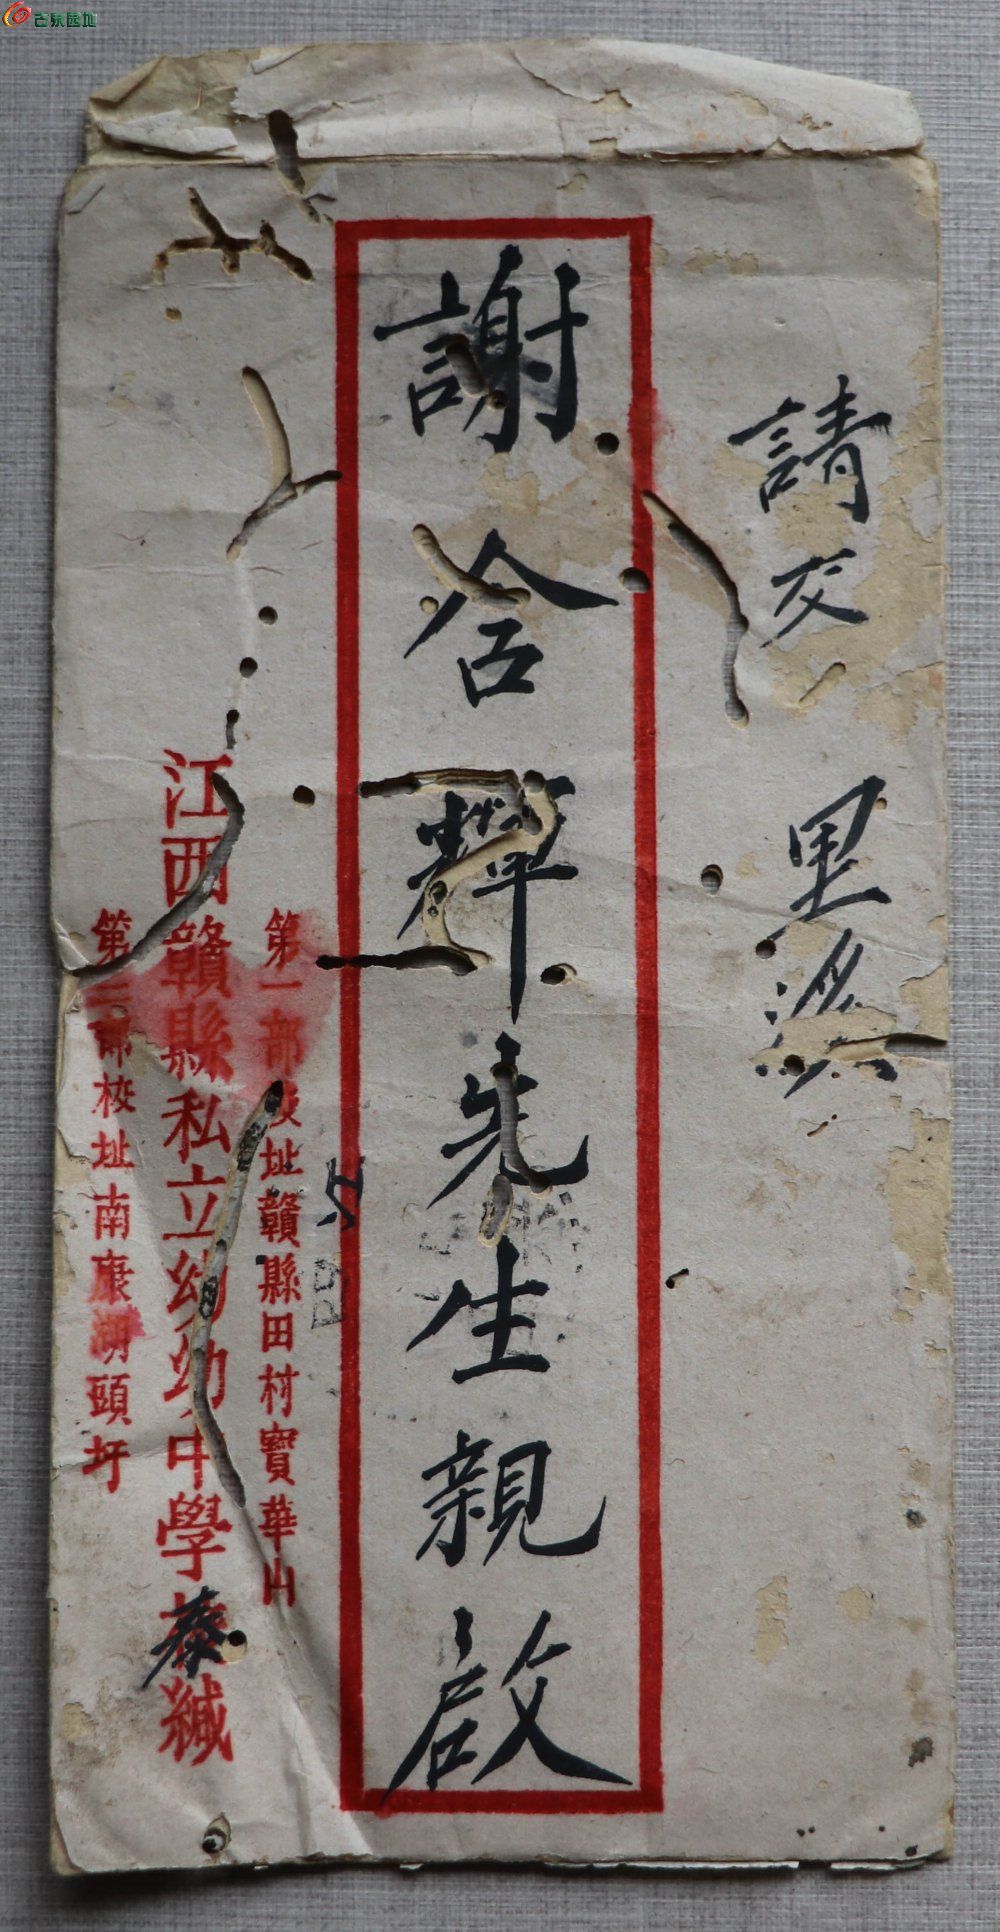 古泉园地
請交
里溪
謝含輝先生親啟
第一部校址贛縣田村寶華山
江西贛縣私立幼幼中學
泰緘
第二部校址南康潭頭圩